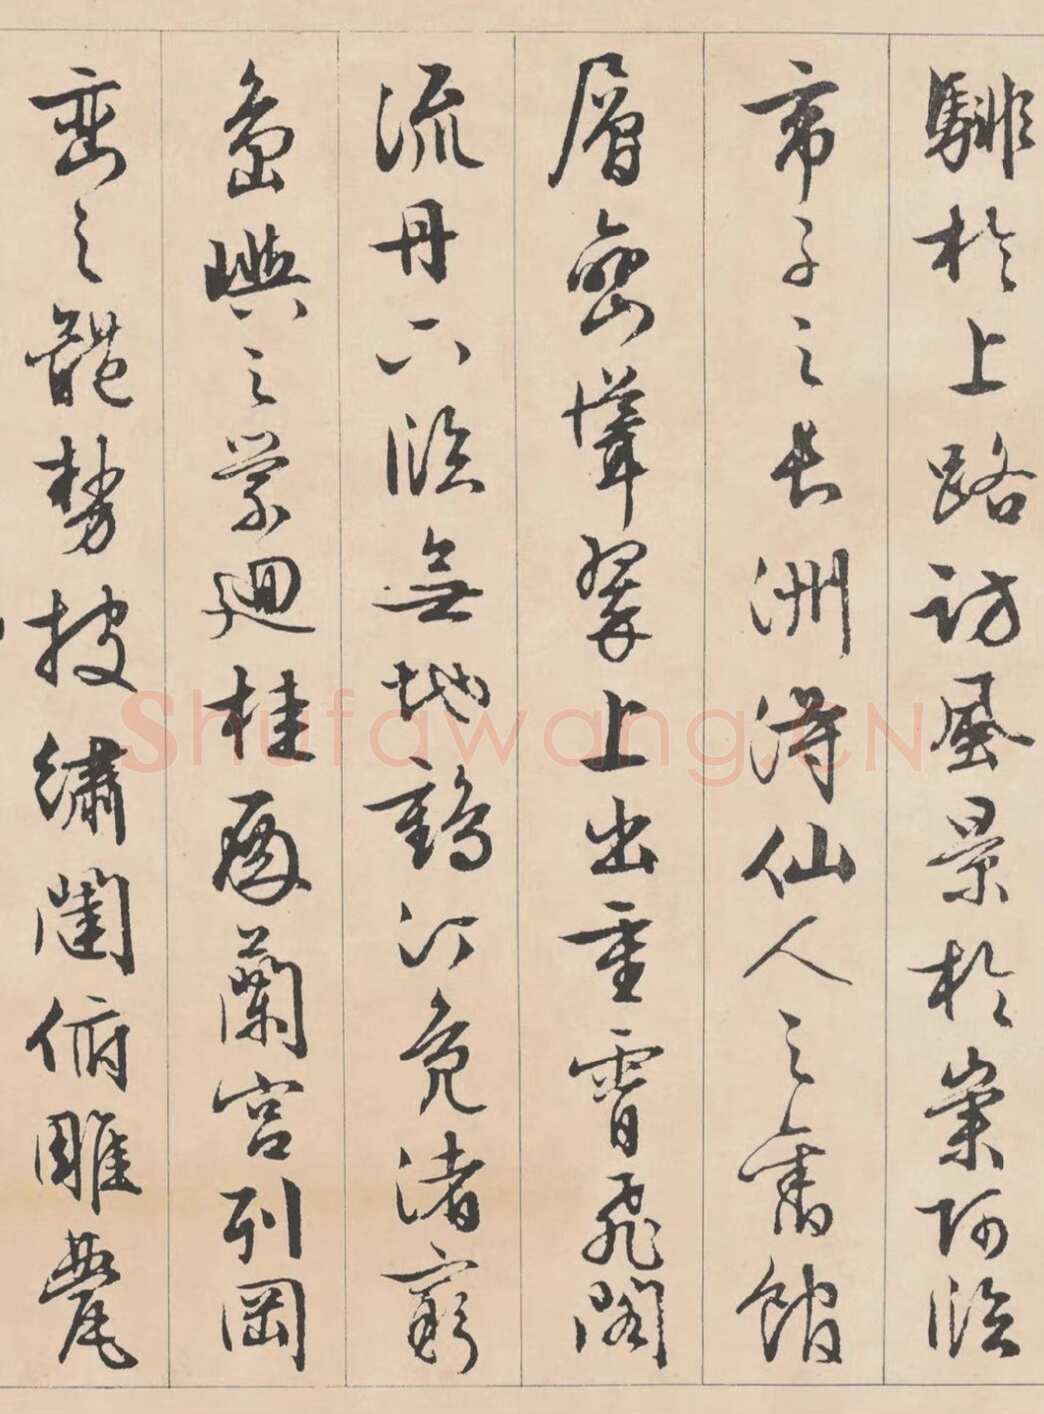 騑於上路訪風景於崇阿臨
帝子之長洲得仙人之舊館
層巒聳翠上出重霄飛閣
流丹下臨無地鶴汀鳧渚窮
島嶼之縈迴桂殿蘭宮列岡
巒之體勢披繡闥俯雕甍
Shufawang.CN